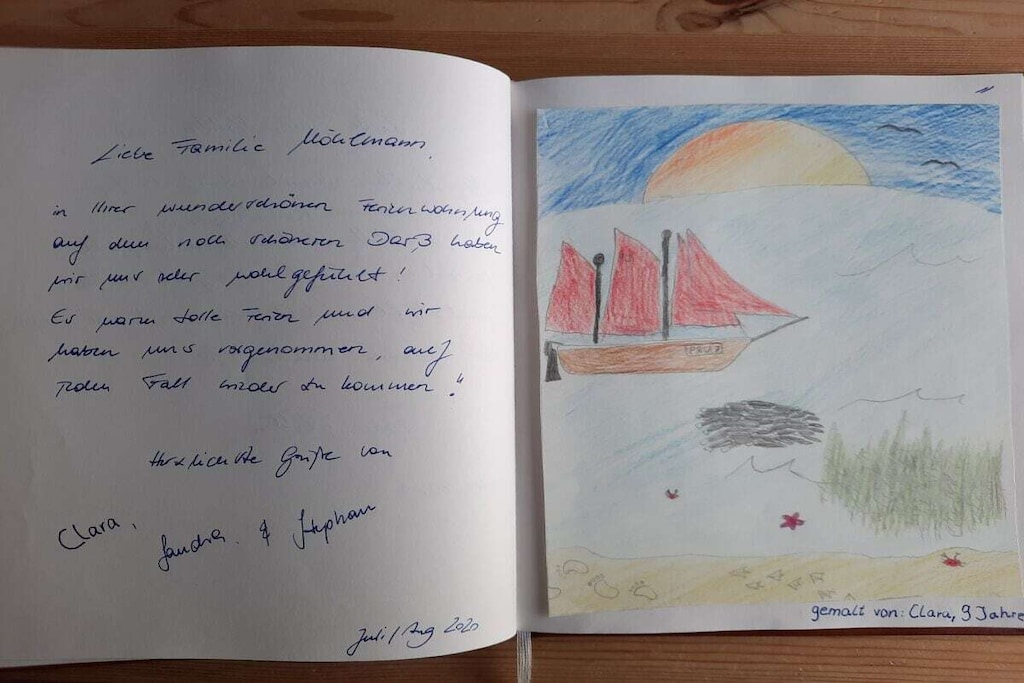 Liebe Familie Möhlmann,
in Ihrer wunderschönen Ferienwohnung
auf dem noch schöneren Darß haben
wir uns sehr wohlgefühlt!
Es waren tolle Ferien und wir
haben uns vorgenommen, auf
jeden Fall wieder zu kommen!
Herzlichste Grüße von
Clara,
Sandra & Stephan
Juli/Aug 2020
gemalt von: Clara, 9 Jahre